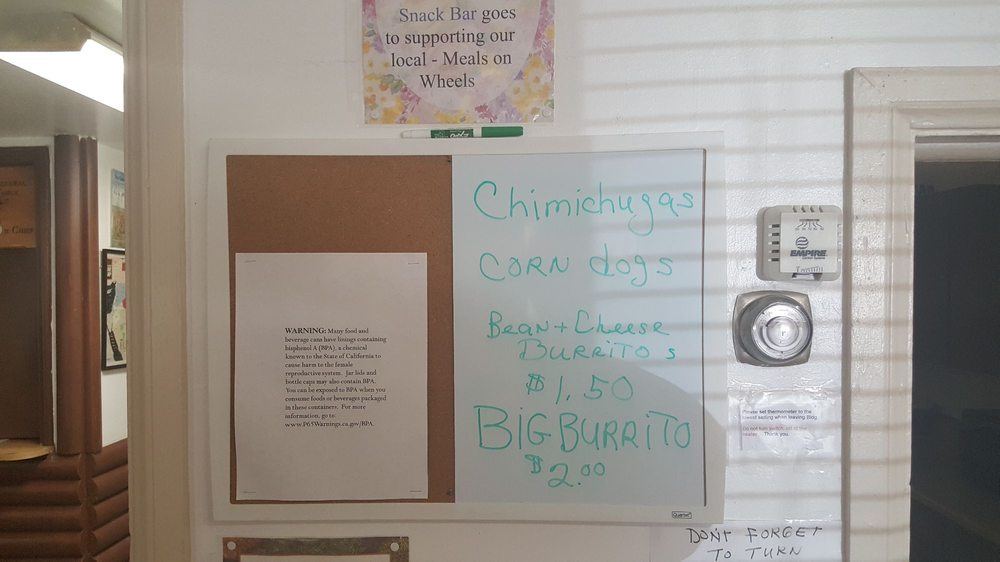 Snack Bar goes
to supporting our
local - Meals on
Wheels
Chimichugas
CORN dogs
Bean + Cheese
BURRITOS
$1.50
BIG BURRITO
$2.00
WARNING: Many food and
beverage cans have linings containing
bisphenol A (BPA), a chemical
known to the State of California to
cause harm to the female
reproductive system. Jar lids and
bottle caps may also contain BPA.
You can be exposed to BPA when you
consume foods or beverages packaged
in these containers. For more
information, go to:
www.P65Warnings.ca.gov/BPA.
EMPIRE
Please set thermometer to the
lowest setting when leaving Bldg
Do not turn switch off at the
heater. Thank you.
Quartet
DON'T FORGET
TO TURN